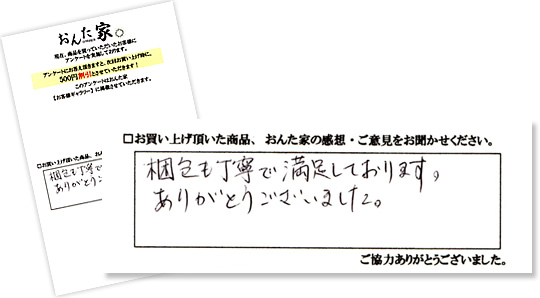 おんた家
現在、商品を買っていただいたお客様に
アンケートを実施しております。
アンケートにお答え頂きますと、次回お買い上げ時に、
500円割引とさせていただきます!
このアンケートはおんた家
【お客様ギャラリー】に掲載させていただきます。
□お買い上げ頂いた商品、おん
梱包も丁寧で
ありがとうこ
□お買い上げ頂いた商品、おんた家の感想・ご意見をお聞かせください。
梱包も丁寧で満足しております。
ありがとうございました。
ご協力ありがとうございました。